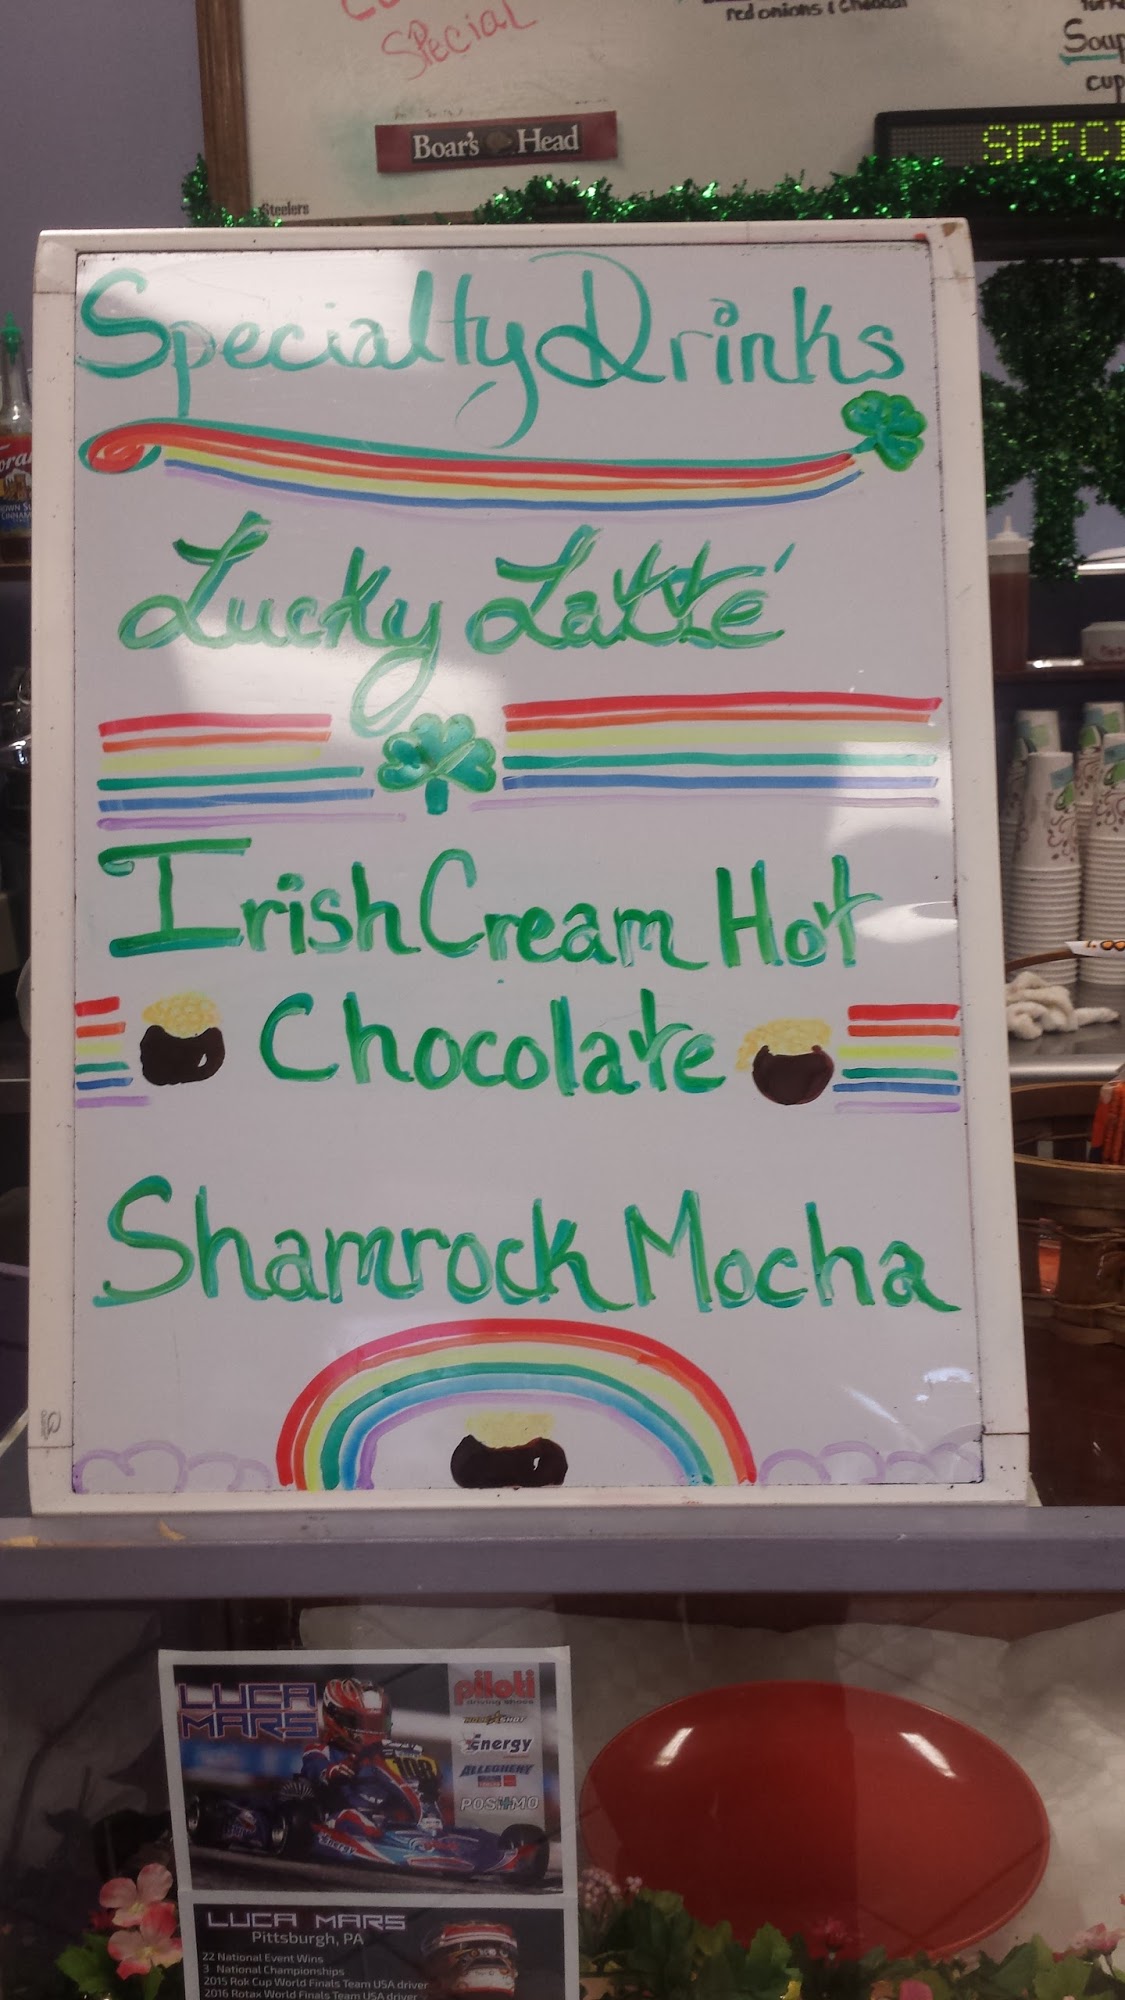 Special
red onions & cheddar
Soup
cup
Boar's Head
SPECI
Steelers
Specialty Drinks
Lucky Latté
Irish Cream Hot
Chocolate
Shamrock Mocha
LUCA
MARS
piloti
driving shoes
Energy
ALLEGHENY
108
Energy
LUCA MARS
Pittsburgh, PA
22 National Event Wins
3 National Championships
2015 Rok Cup World Finals Team USA driver
2016 Rotax World Finals Team USA driver